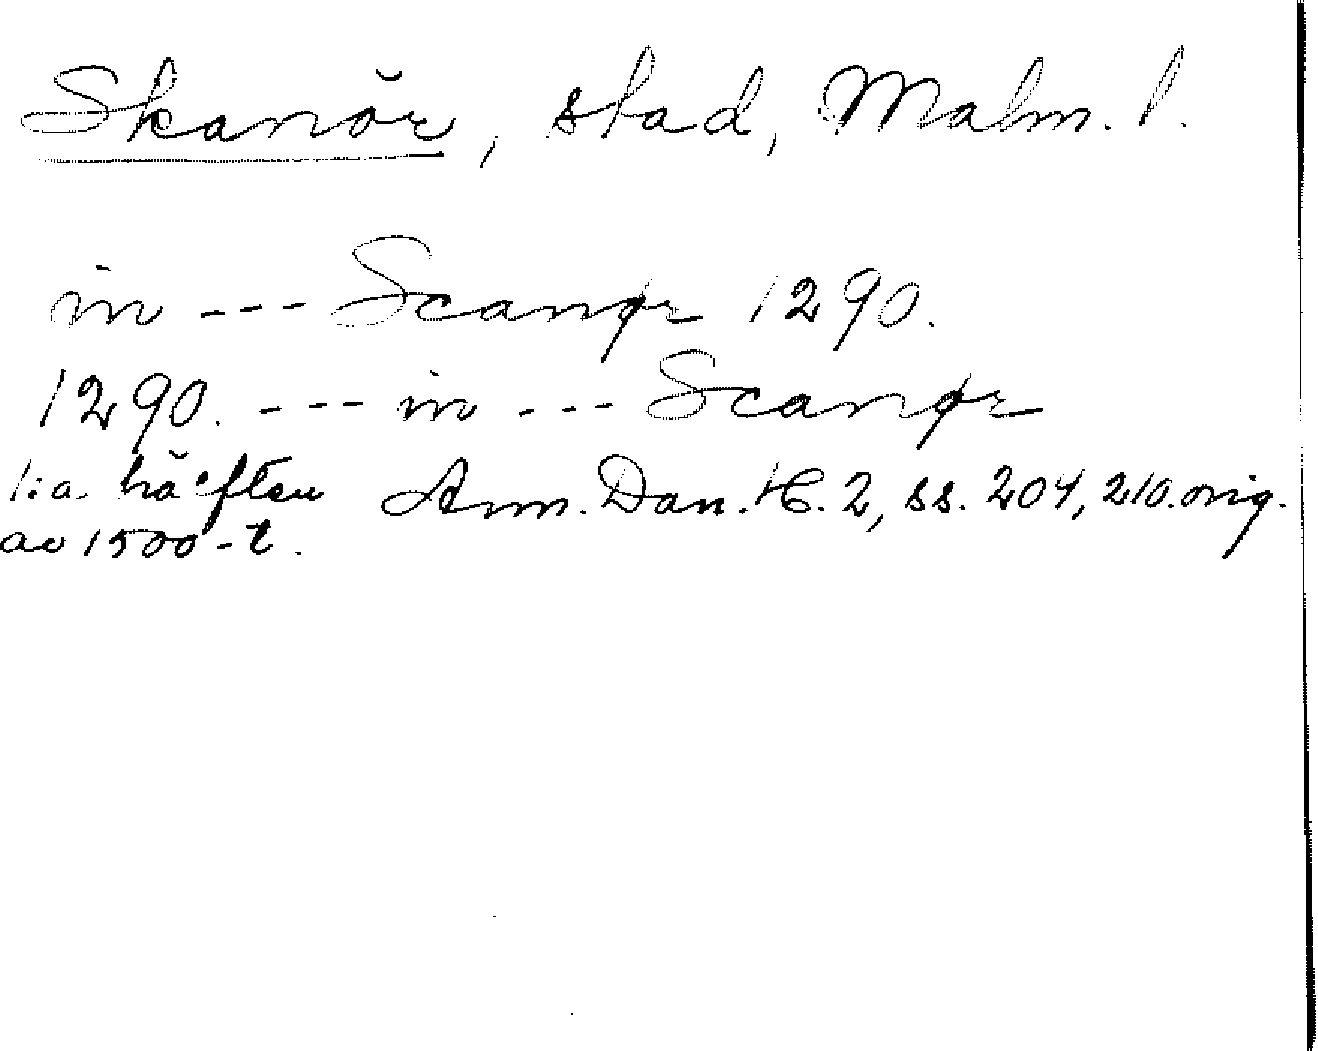 Skanör, stad, Malm. l.
in --- Scanør 1290.
1290. --- in --- Scanør
1:a hälften Ann. Dan. H. 2, ss. 204, 210. orig.
av 1500-t.